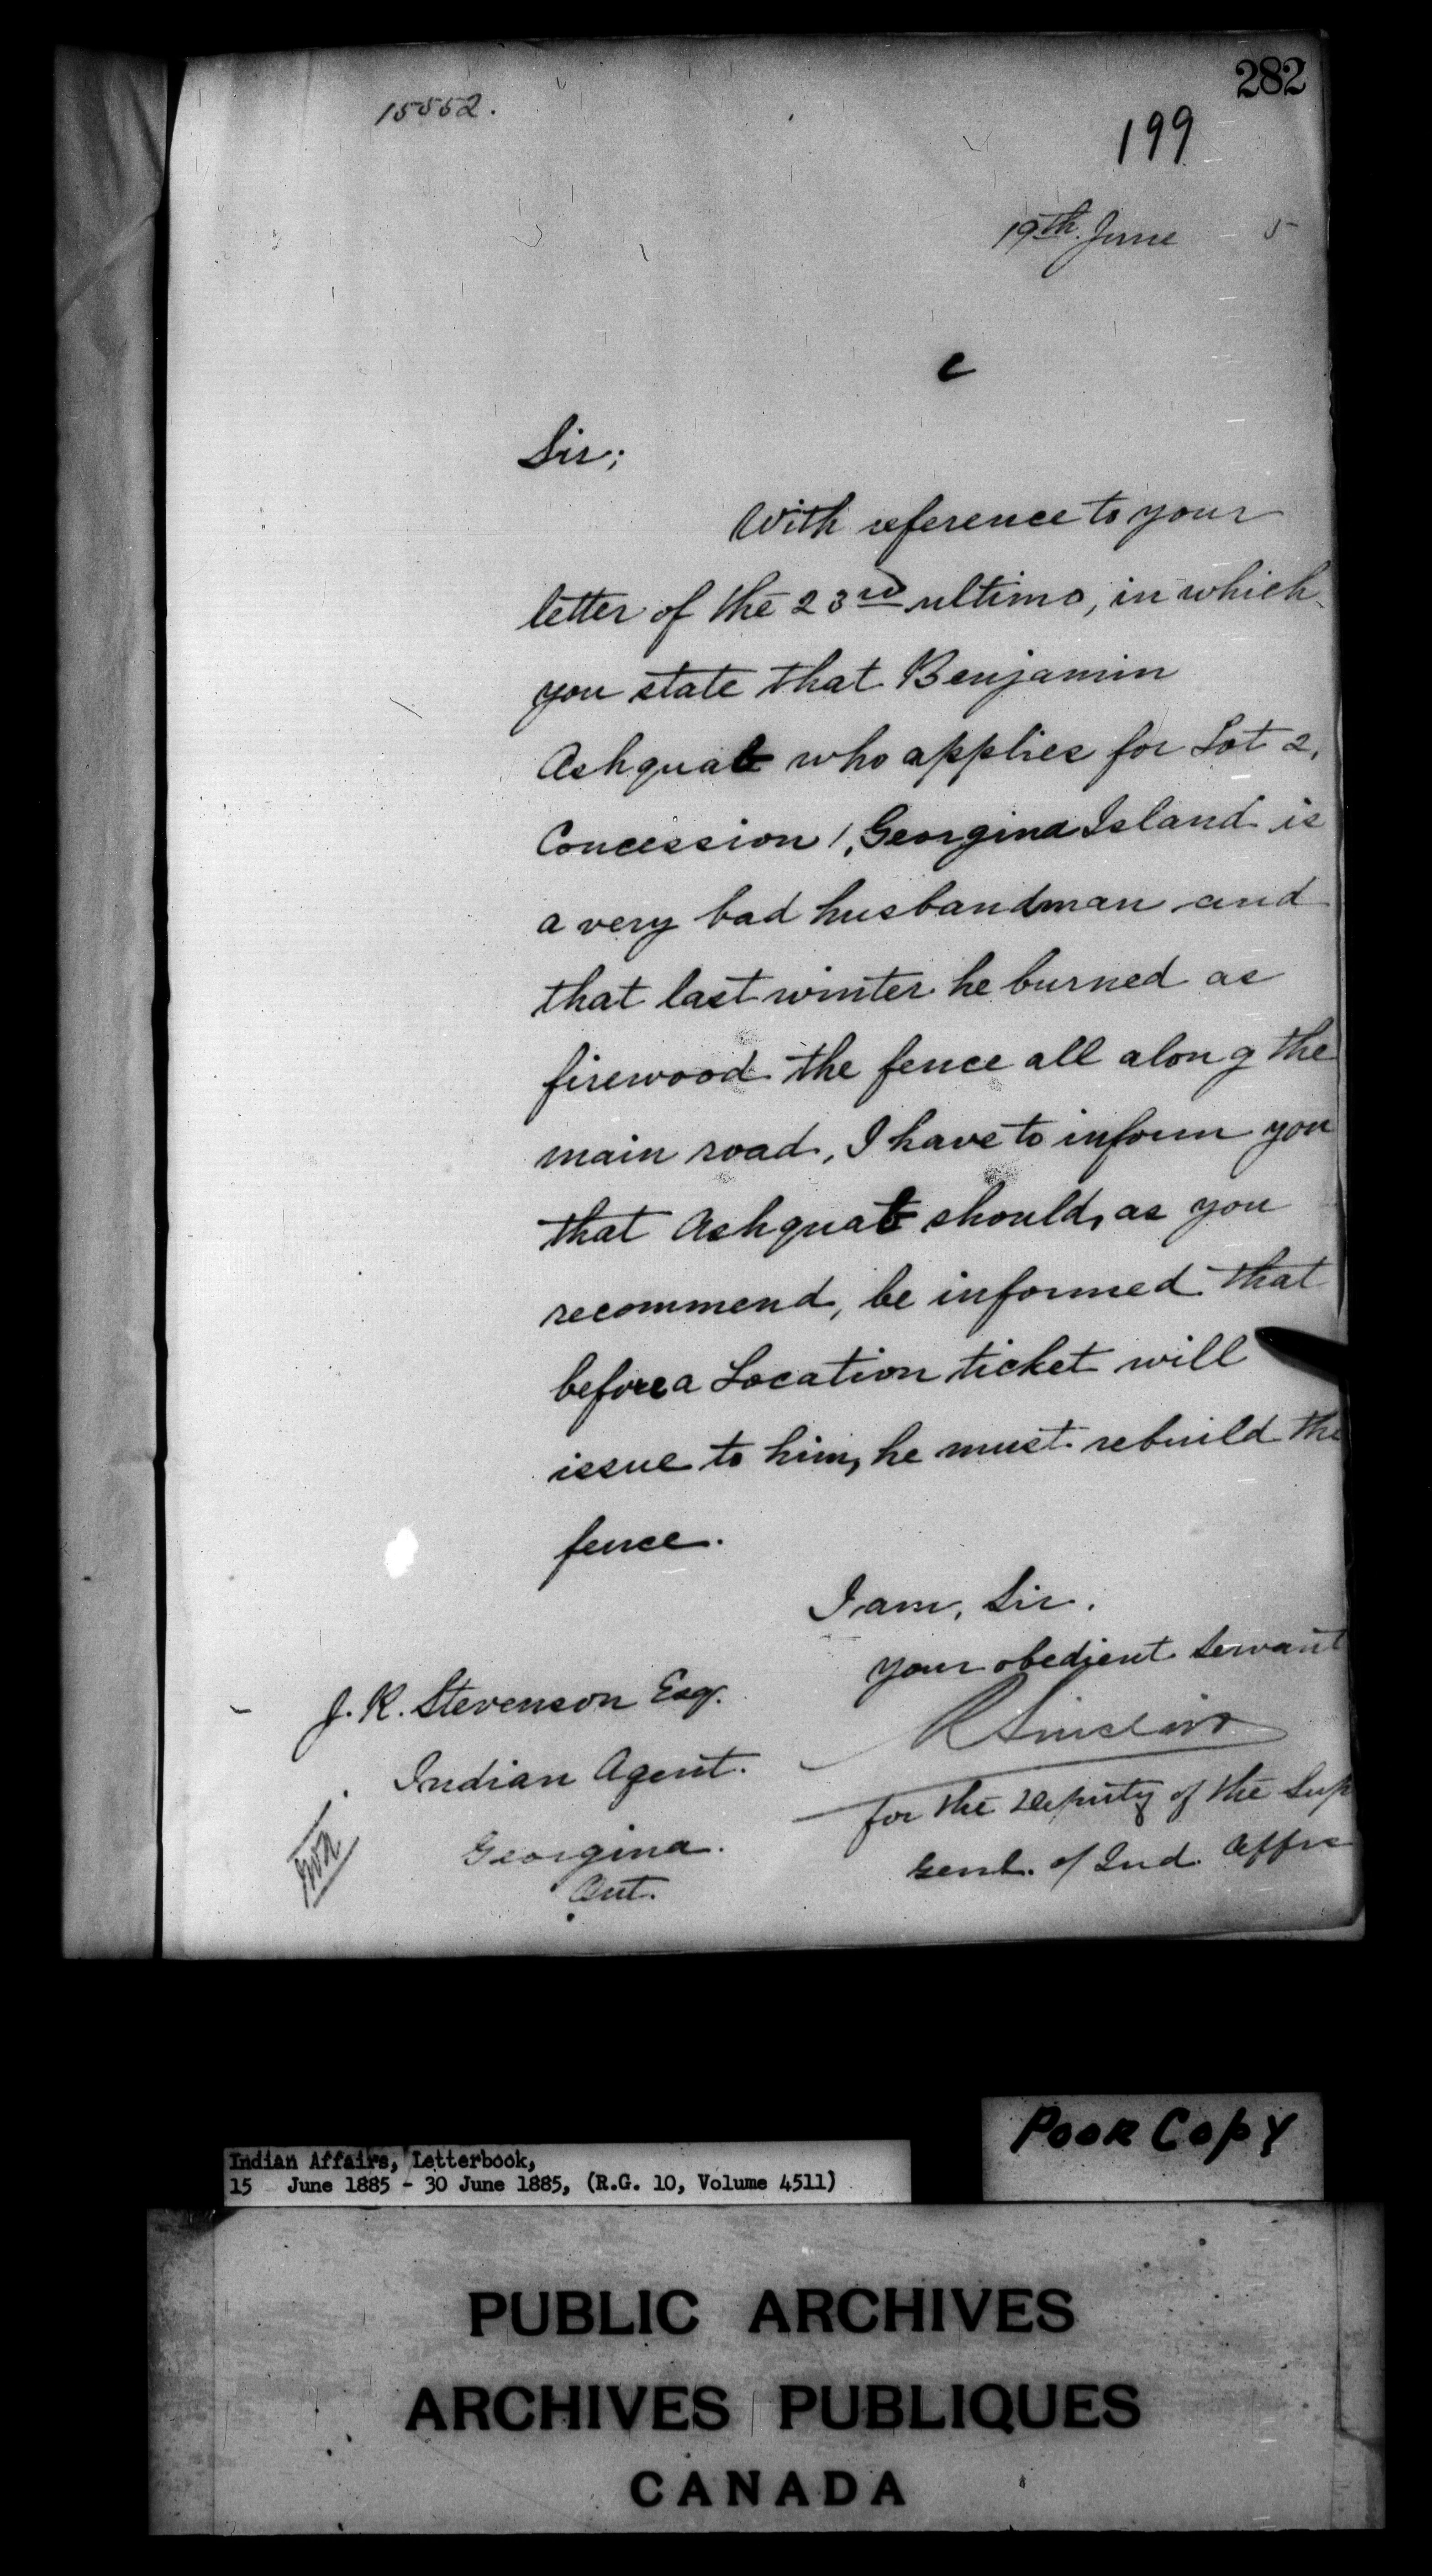 282
15552.
199
19th June 5
c
Sir;
With reference to your
letter of the 23rd ultimo, in which
you state that Benjamin
Ashquab who applies for Lot 2,
Concession 1, Georgina Island is
a very bad husbandman and
that last winter he burned as
firewood the fence all along the
main road, I have to inform you
that Ashquab should, as you
recommend, be informed that
before a Location ticket will
issue to him, he must rebuild the
fence.
I am, Sir.
your obedient Servant
R Sinclair
for the Deputy of the Sup
Genl. of Ind. Affrs
J. R. Stevenson Esqr.
Indian Agent.
Georgina.
Ont.
Poor Copy
Indian Affairs, Letterbook,
15 June 1885 - 30 June 1885, (R.G. 10, Volume 4511)
PUBLIC ARCHIVES
ARCHIVES PUBLIQUES
CANADA